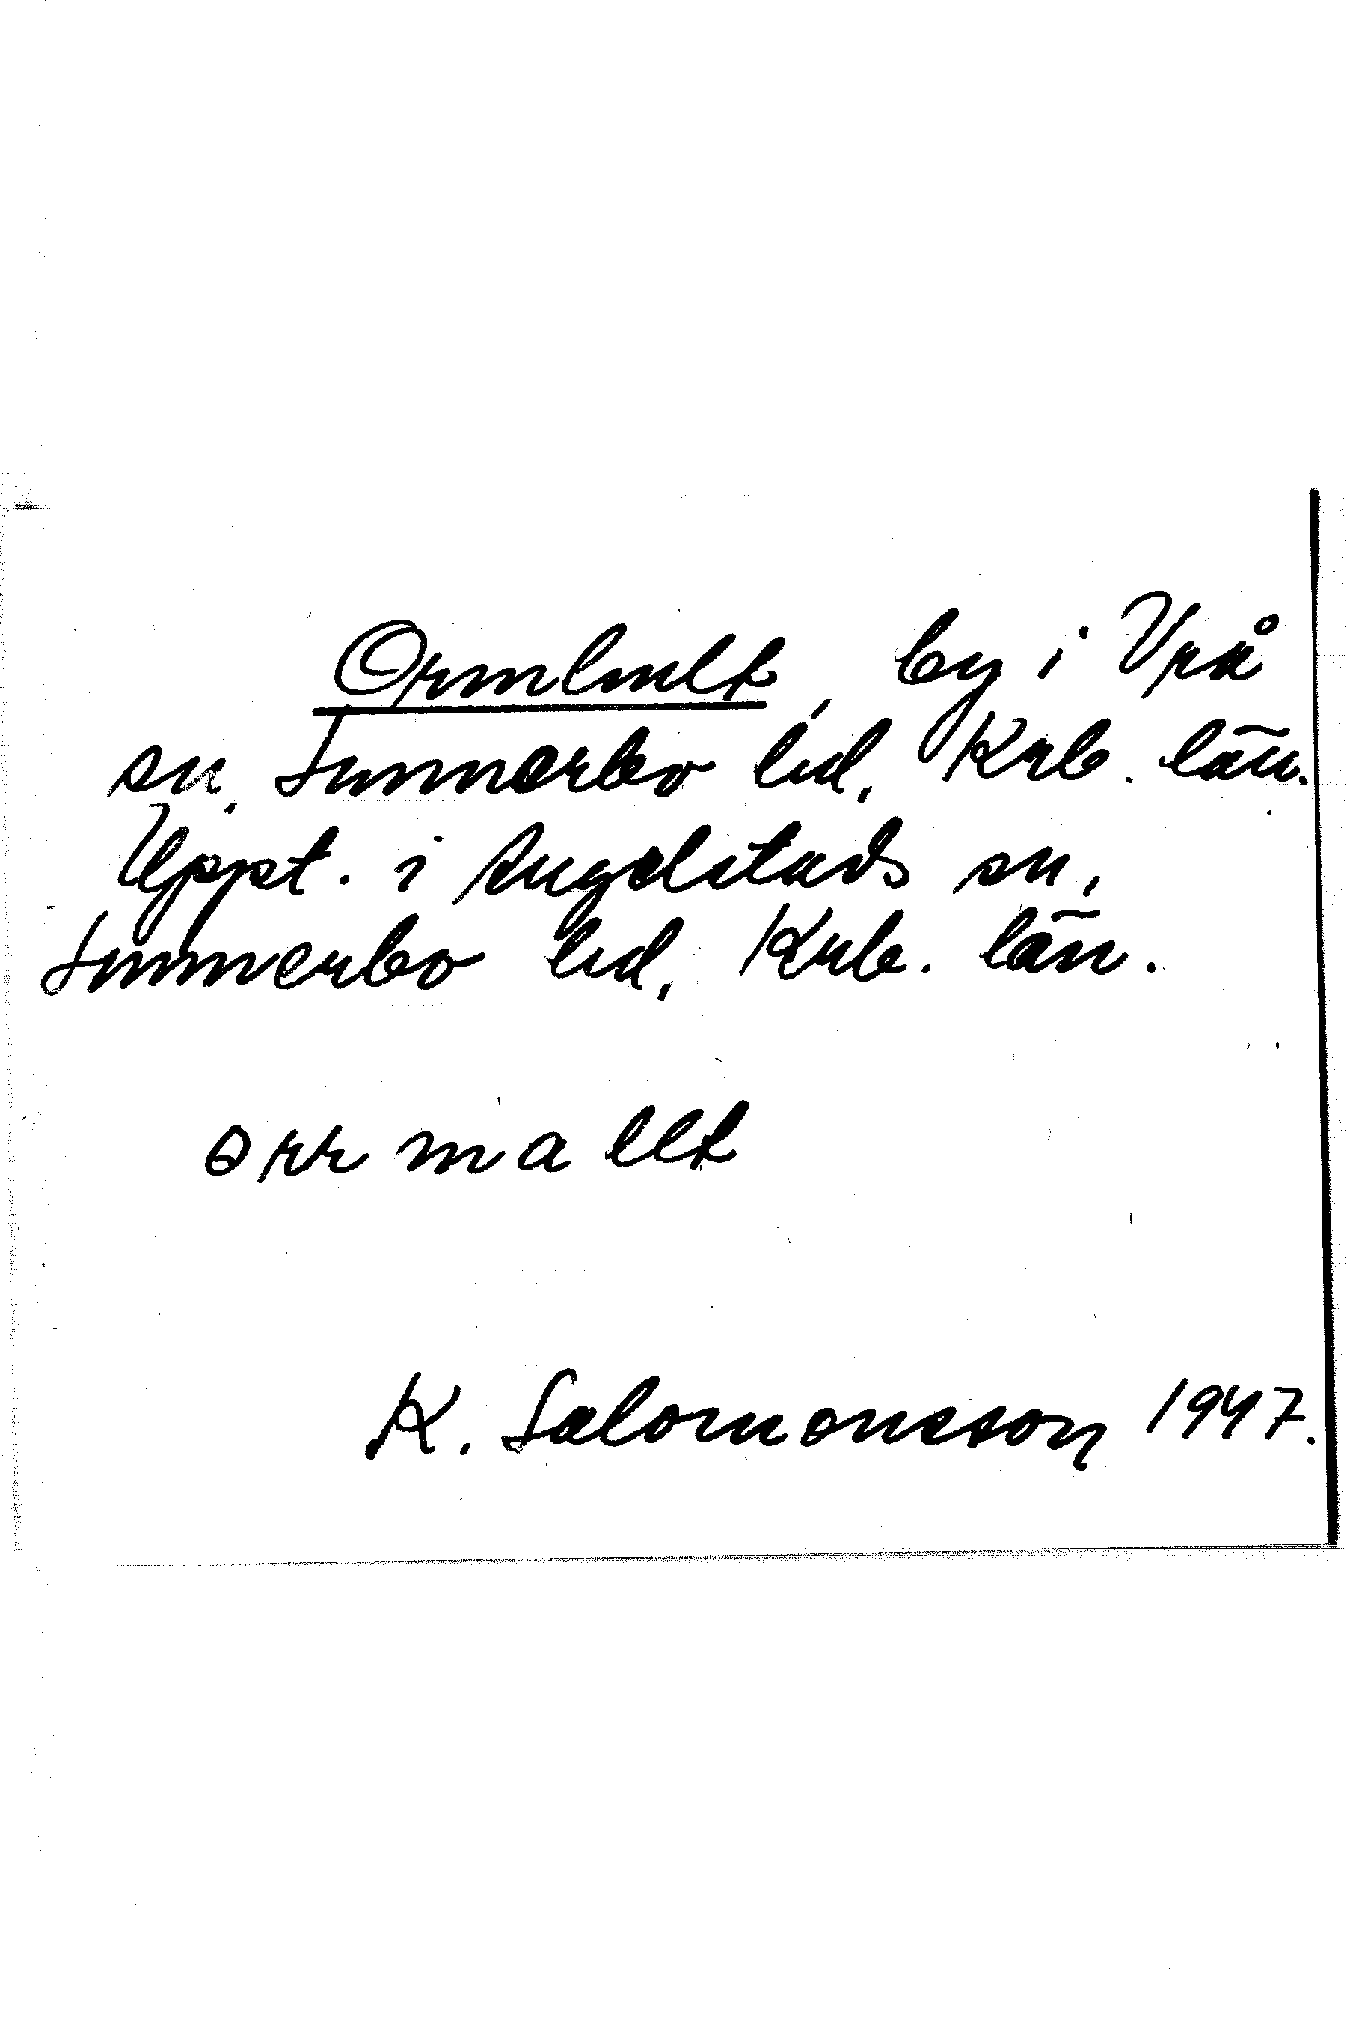 Ormhult, by i Vrå
sn, Sunnerbo hd, Krb. län.
Uppt. i Angelstads sn,
Sunnerbo hd, Krb. län.
orr m a llt
K. Salomonsson 1947.